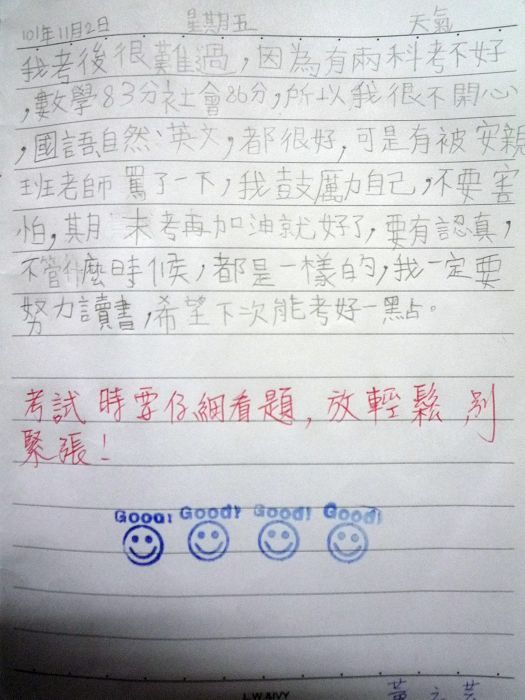 101年11月2日 星期五 天氣
我考後很難過,因為有兩科考不好
,數學83分社會86分,所以我很不開心
,國語自然、英文,都很好,可是有被安親
班老師罵了一下,我鼓厲力自己,不要害
怕,期末考再加油就好了,要有認真,
不管什麼時候,都是一樣的,我一定要
努力讀書,希望下次能考好一點。
考試時要仔細看題,放輕鬆,別
緊張!
Good! Good! Good! Good!
黃